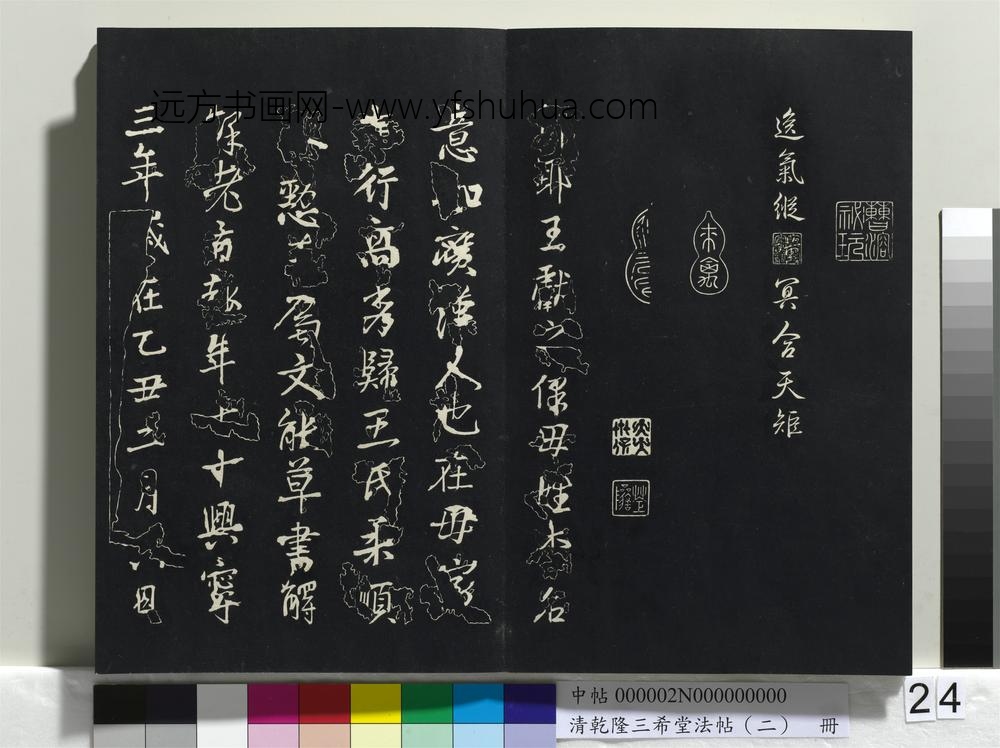 逸氣縱 冥合天矩
王獻之保母姓李名
意如廣漢人也在母家
行高秀歸王氏柔順
懃 屬文能草書解
老 年七十興寧
三年歲在乙丑二月六日
远方书画网-www.yfshuhua.com
中帖 000002N000000000
清乾隆三希堂法帖（二） 冊
24